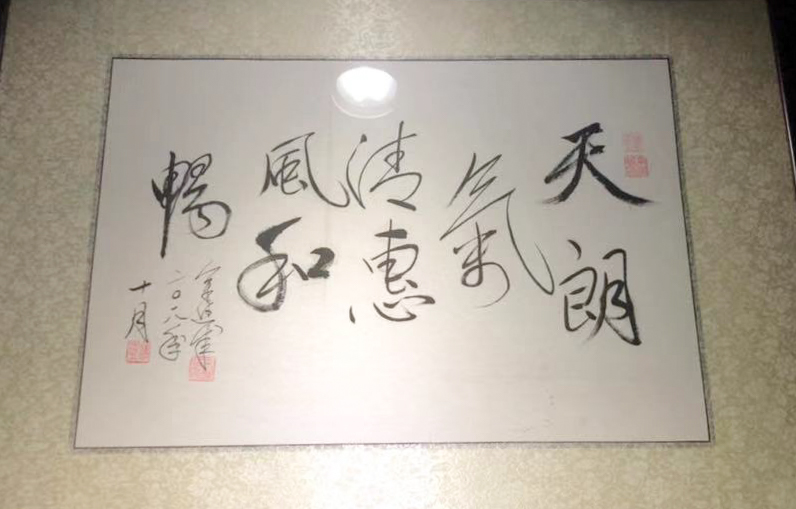 天朗
氣
清惠
風和
暢
二〇一八年
十月